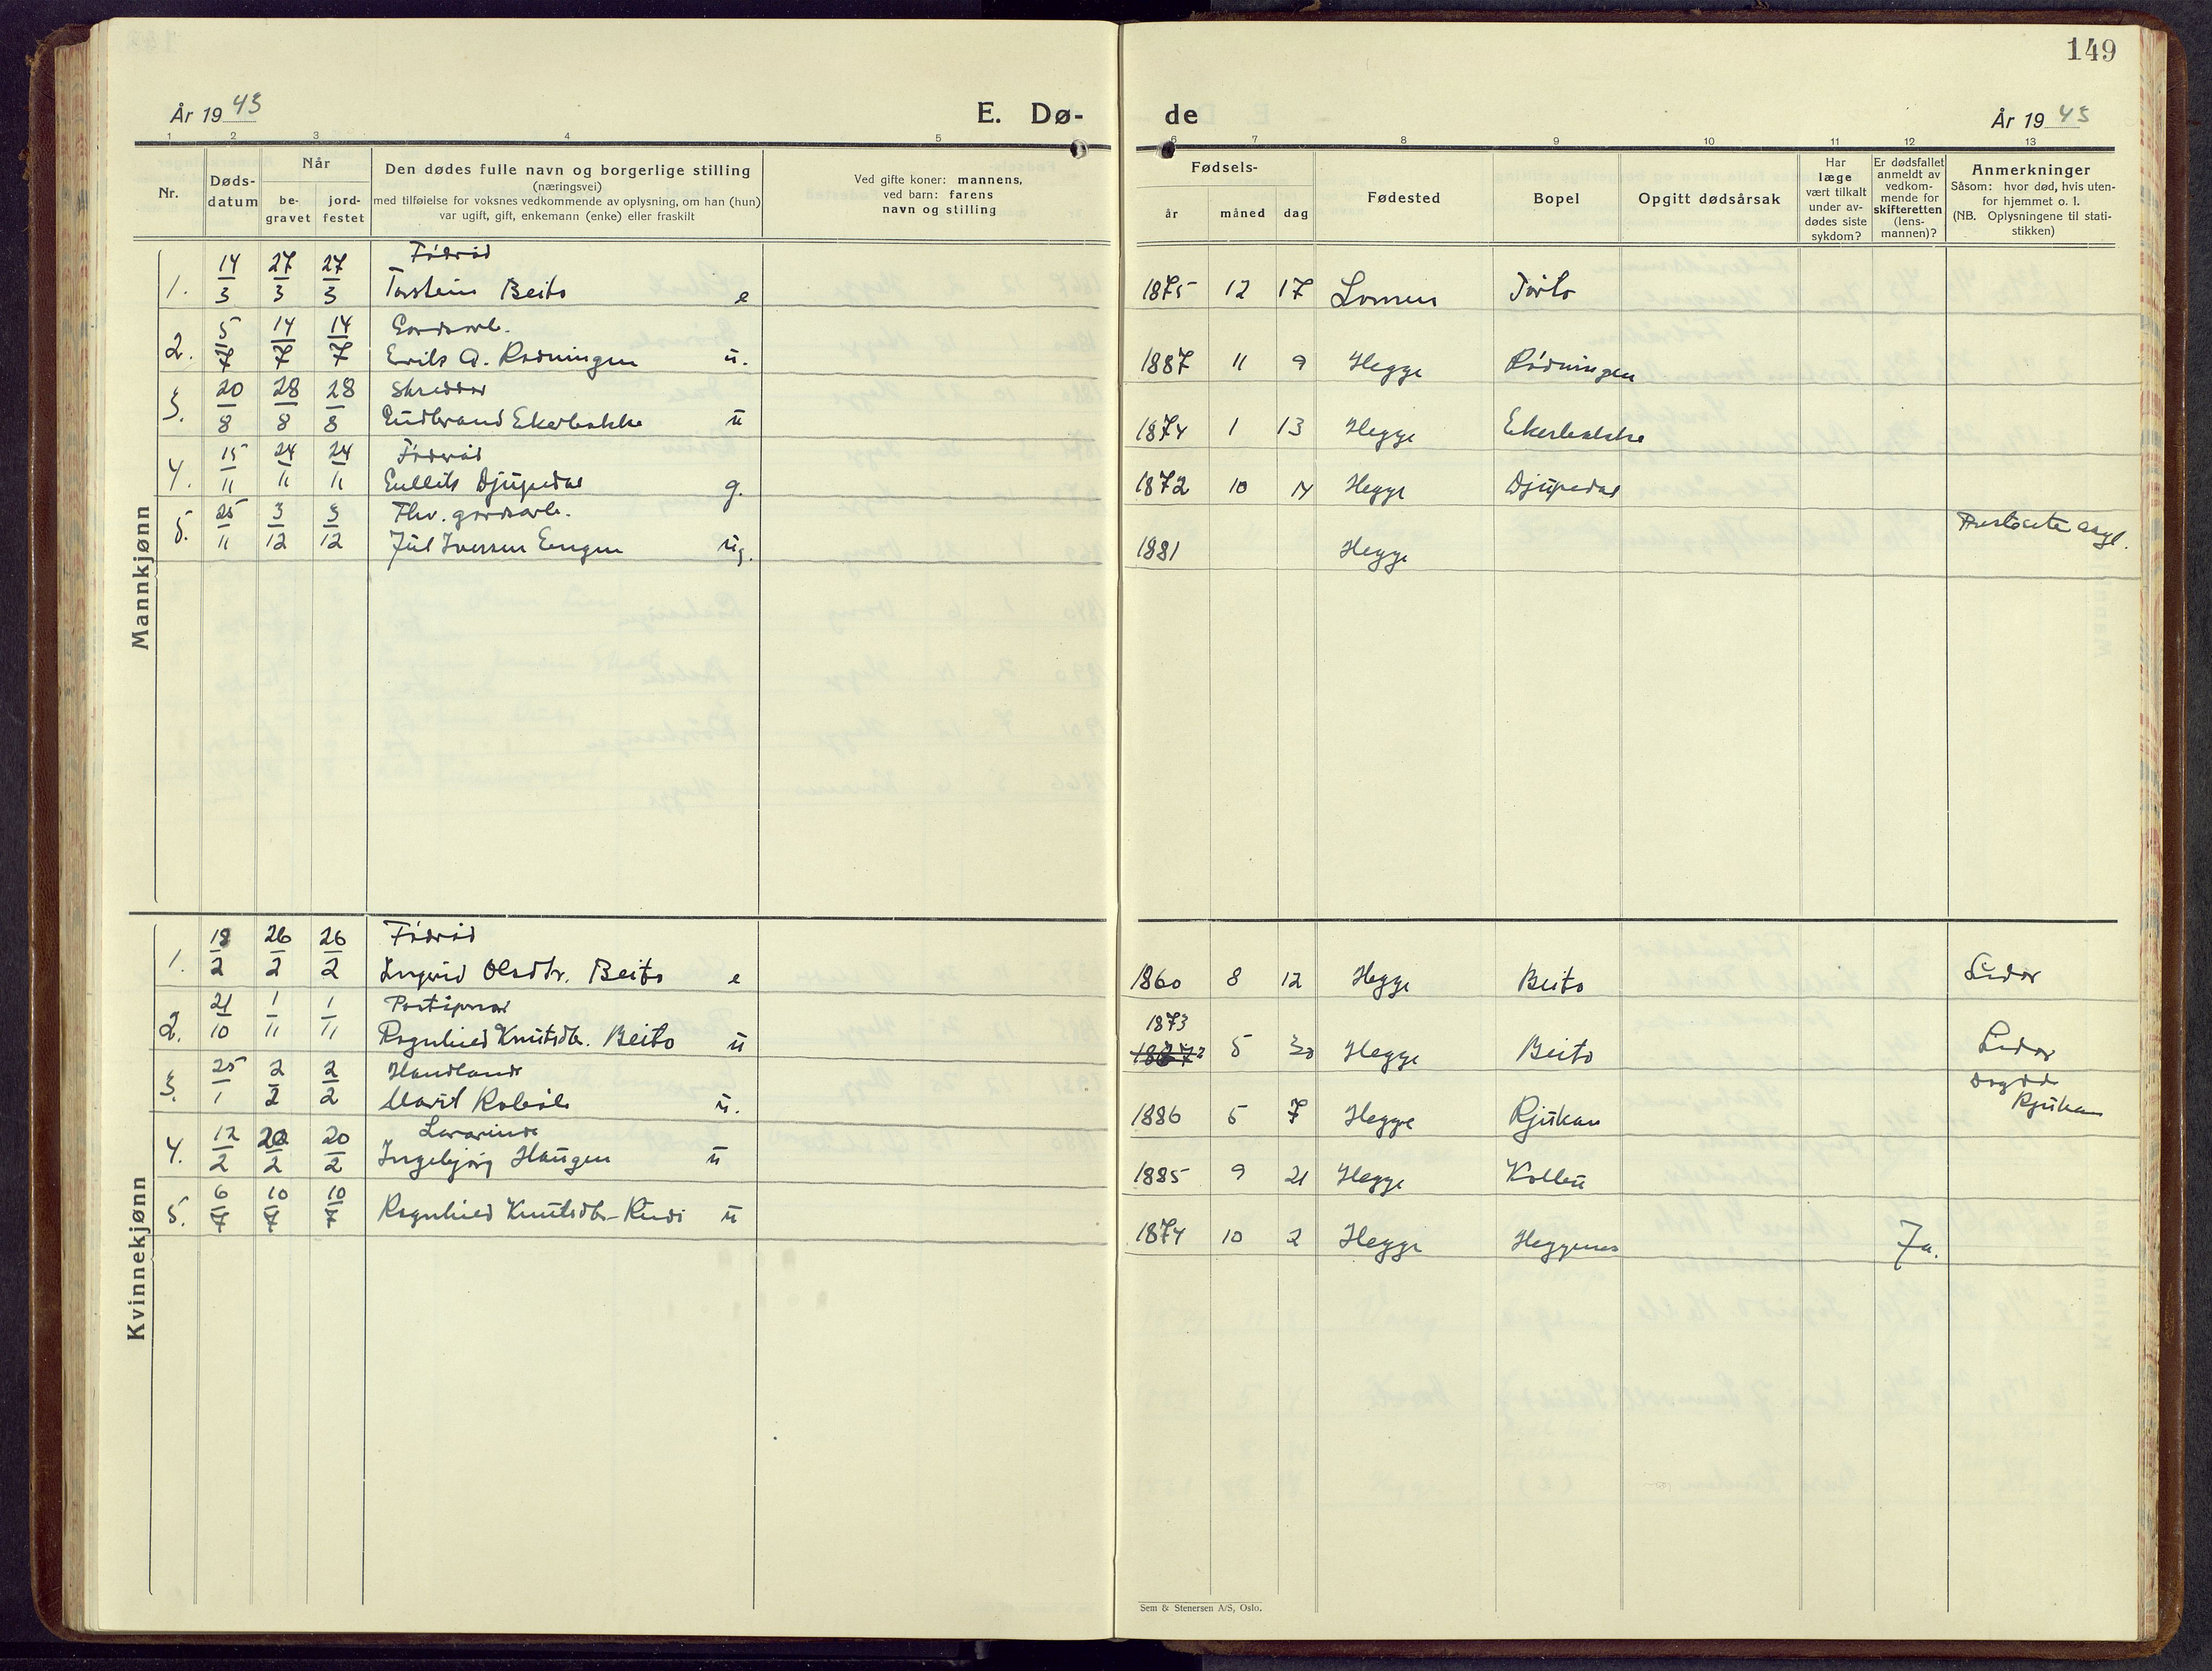 149
År 19 43
E. Dø-
de
År 19 43
1 2 3 4 5 6 7 8 9 10 11 12 13
Nr.
Døds-
datum
Når
be-
gravet
jord-
festet
Den dødes fulle navn og borgerlige stilling
(næringsvei)
med tilføielse for voksnes vedkommende av oplysning, om han (hun)
var ugift, gift, enkemann (enke) eller fraskilt
Ved gifte koner: mannens,
ved barn: farens
navn og stilling
Fødsels-
år
måned
dag
Fødested
Bopel
Opgitt dødsårsak
Har
læge
vært tilkalt
under av-
dødes siste
sykdom?
Er dødsfallet
anmeldt av
vedkom-
mende for
skifteretten
(lens-
mannen)?
Anmerkninger
Såsom: hvor død, hvis uten-
for hjemmet o. l.
(NB. Oplysningene til stati-
stikken)
Mannkjønn
Føderåd
1. 14/3 27/3 27/3 Torstein Beito e 1875 12 17 Lomen
Gardsarb.
2. 5/7 14/7 14/7 Erik A. Rødningen u. 1887 11 9 Hegge Rødningen
Skredder
3. 20/8 28/8 28/8 Gudbrand Ekerbakke u 1874 1 13 Hegge Ekerbakke
Føderåd
4. 15/11 24/11 24/11 Gullik Djupedal g. 1872 10 14 Hegge Djupedal
Fhv. gardsarb.
5. 25/11 3/12 3/12 Jul Iversen Engen ug. 1881 Hegge
Kvinnekjønn
Føderåd
1. 18/2 26/2 26/2 Ingrid Olsdtr. Beito e 1860 8 12 Hegge Beito Lidar
2. 21/10 1/11 1/11 Ragnhild Knutsdtr. Beito u 1873 5 30 Hegge Beito Lidar
3. 25/1 2/2 2/2 Marit Robøle u. 1886 5 7 Hegge Rjukan
Rjukan
Lærarinde
4. 12/2 20/2 20/2 Ingebjørg Haugen u 1885 9 21 Hegge Kollen
5. 6/7 10/7 10/7 Ragnhild Knutsdtr. Rudi u 1874 10 2 Hegge Heggenes Ja.
Sem & Stenersen A/S, Oslo.